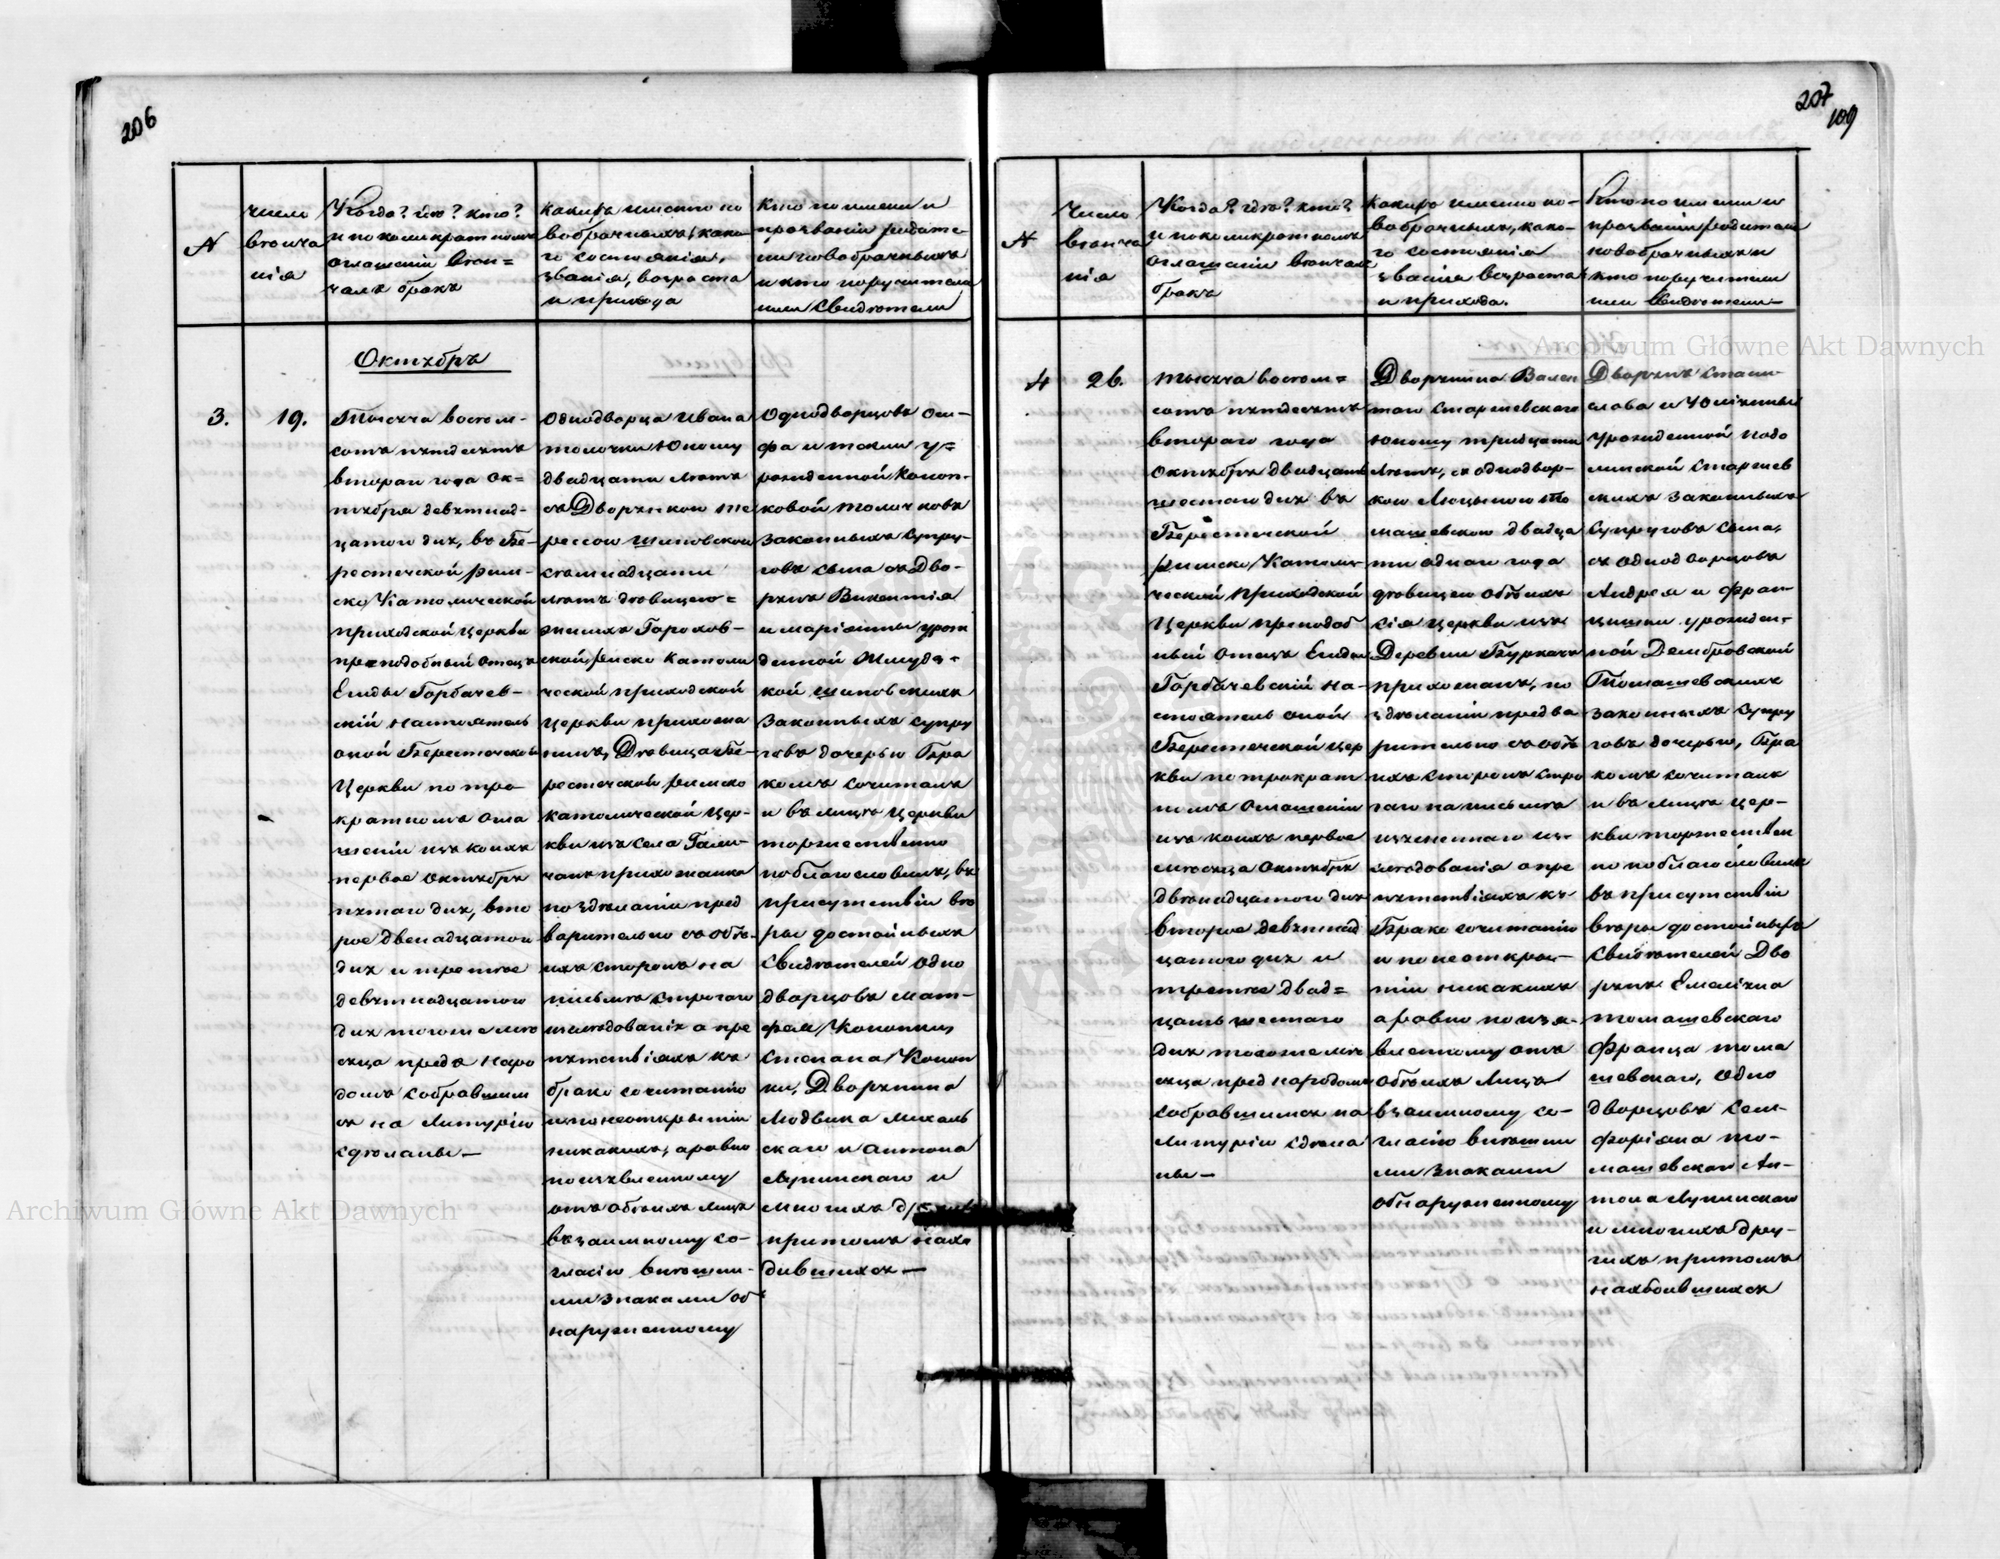 206
N
число венча нія
Когда? гдѣ? кто? и по коликратномъ оглашеніи Вѣн= чалъ бракъ
какихъ именно но вобрачныхъ, како го состоянія, званія, возраста и прихода
Кто по имени и прозванію родите ли новобрачныхъ и кто поручители или свидѣтели
Октябрь
3.
19.
Тысяча восем-
сотъ пятдесятъ
втораго года ок=
тября девятнад-
цатого дня, въ Бе-
рестечской рим-
ско Католической
приходской церкви
преподобный отецъ
Горбачев-
скій настоятель
оной Берестечской
Церкви по тро-
кратномъ огла
шеніи изъ коихъ
первое октября
пятаго дня, вто
рое двенадцатого
дня и третое
девятнадцатого
дня тогоже мѣ
сяца предъ наро
домъ собравшим
ся на литургію
сдѣланы—
Однодворца Ивана
Толочка юношу
двадцати лѣтъ
съ Дворянкою Те
рессою Шиповскою
семнадцати
лѣтъ девицею=
жениха Горохов-
ской римско Католи
ческой приходской
церкви прихожа
нина, Девица Бе-
рестечской римско
католической цер-
кви изъ села
прихожанка
по здѣланіи пред
варительно съ обѣ-
ихъ сторонъ на
письмѣ строгаго
изслѣдованія о пре
пятствіяхъ къ
брако сочитанію
и по неоткрытіи
никакихъ, а равно
по изъявленному
отъ обѣихъ лицъ
взаимному со-
гласію внѣшни-
ми знаками об
наруженному
Однодворцовъ
рожденной Коноп-
ковой Толочковъ
законныхъ супру-
говъ сына съ Дво-
рянъ Викентія
и Маріянны урож
денной
кой Шиповскихъ
законныхъ супру
говъ дочерью Бра
комъ сочиталъ
и въ лицѣ церкви
торжественно
поблагословилъ, въ
присутствіи вѣ
ры достойныхъ
свидѣтелей одно
дворцовъ Мат-
фея Конопки,
Степана Коноп
ки, Дворянина
Людвика Михаль
скаго и Антона
Лупинскаго и
многихъ
притомъ нахо
дившихся—
207
109
N
Число венча нія
Когда? гдѣ? кто? и поколикратномъ оглашеніи Вѣнчалъ бракъ
Какихъ именно но- вобрачныхъ, како- го состоянія званія возраста и прихода.
Кто по имени и прозванію родители новобрачныхъ и кто поручители или свидѣтели—
4
26.
Тысяча восем=
сотъ пятдесятъ
втораго года
Октября двадцать
шестаго дня въ
Берестечской
Римско Католи-
ческой приходской
Церкви преподоб
ный отецъ
Горбачевскій на-
стоятель оной
Берестечской цер
кви по трократ
номъ оглашеніи
изъ коихъ первое
мѣсяца Октября
двенадцатого дня
второе девятнад
цатого дня и
третое двад=
цать шестаго
дня тогоже мѣ
сяца пред народомъ
собравшимся на
литургію сдѣла
ны—
Дворянина Вален
таго Старжевскаго
юношу тридцати
лѣтъ, съ однодвор-
кою То
машевскою двадца
ти одного года
девицею обѣихъ
сія церкви изъ
Деревни
прихожанъ, по
здѣланіи предва
рительно съ обѣ
ихъ сторонъ стро
гаго на письмѣ
из-
слѣдованія о пре
пятствіяхъ къ
Брако сочитанію
и по неоткры-
тіи никакихъ
а равно по изъя-
вленному отъ
обѣихъ лицъ
взаимному со-
гласію внѣшни
ми знаками
обнаруженному
Дворянъ Стани
слава и Юліянны
урожденной Подо
линской Старжев
скихъ законныхъ
супруговъ сына,
съ однодворцовъ
Андрея и Фран-
цишки урожден-
ной Домбровской
Томашевскихъ
законныхъ супру
говъ дочерью, Бра
комъ сочиталъ
и въ лицѣ цер-
кви торжествен
но поблагословилъ
въ присутствіи
вѣры достойныхъ
свидѣтелей Дво
рянъ Емеліяна
Томашевскаго
Франца Тома
шевскаго, одно
дворцовъ Сем-
форіяна То-
машевскаго Ан-
тона Лупинскаго
и многихъ дру-
гихъ притомъ
находившихся
Archiwum Główne Akt Dawnych
Archiwum Główne Akt Dawnych